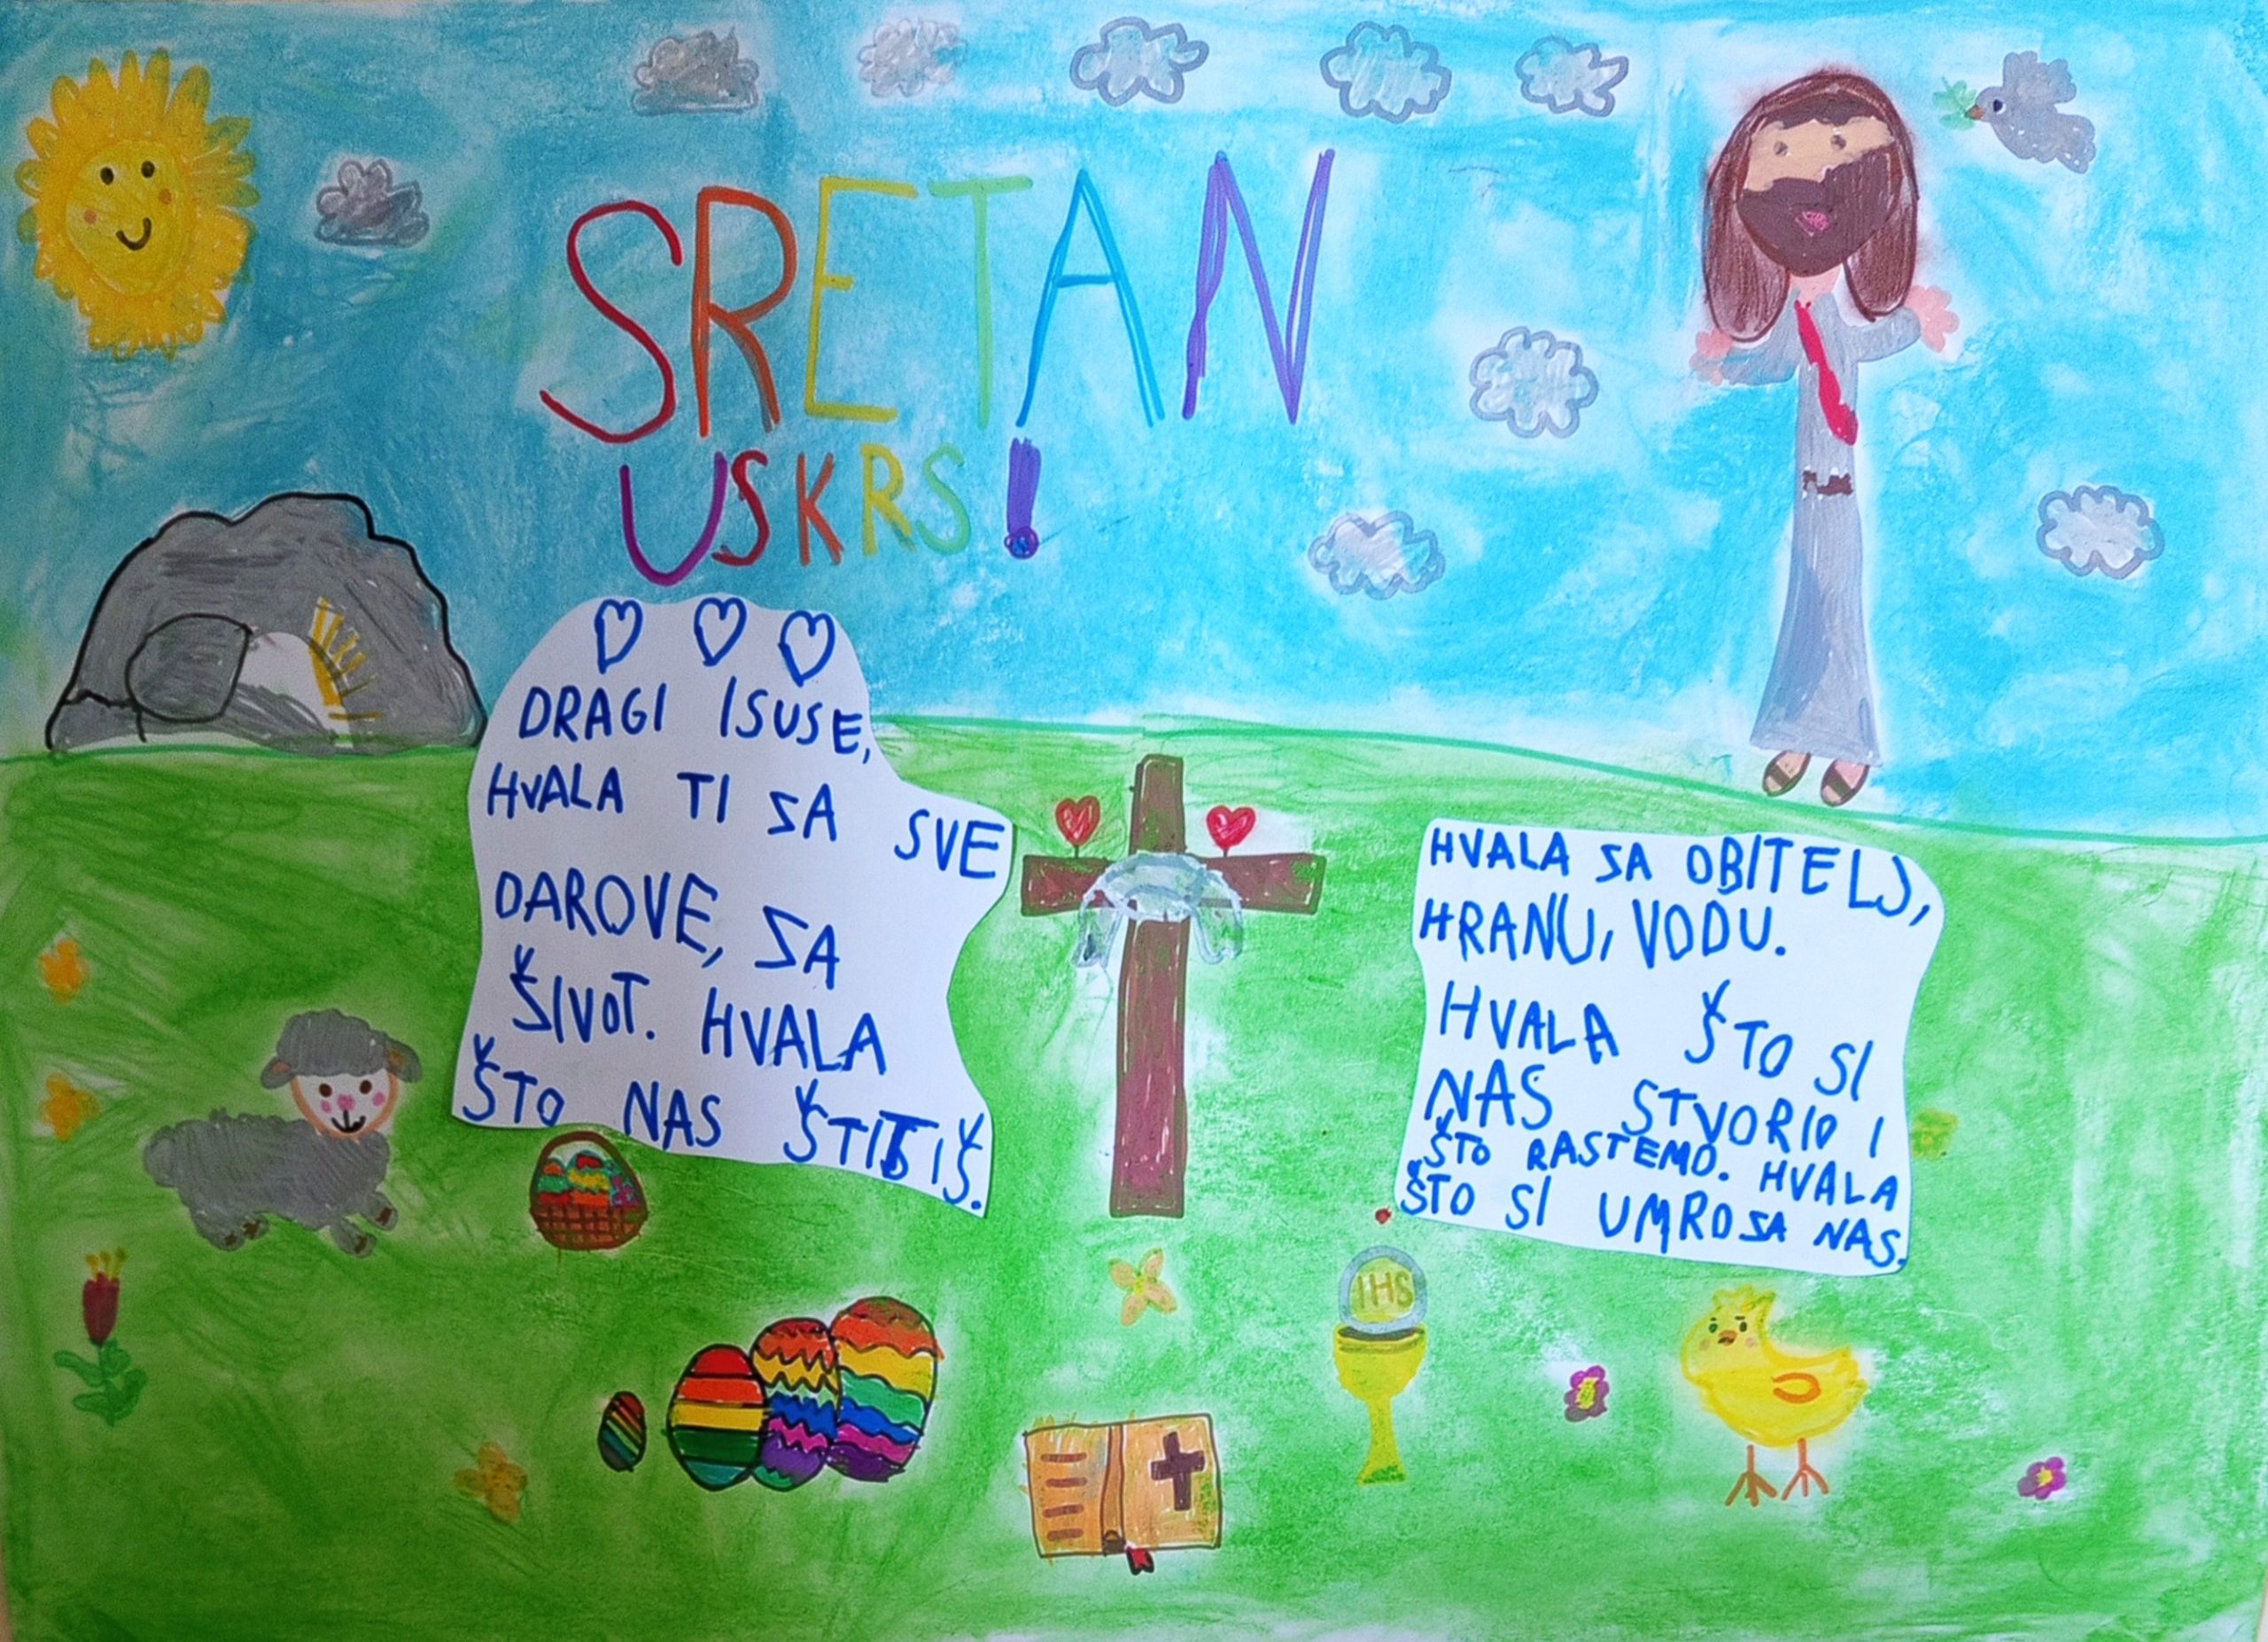 SRETAN
USKRS!
DRAGI ISUSE,
HVALA TI SA SVE
DAROVE, SA
ŠIVOT. HVALA
ŠTO NAS ŠTITIŠ.
HVALA SA OBITELJ,
HRANU, VODU.
HVALA ŠTO SI
NAS STVORIO I
ŠTO RASTEMO. HVALA
ŠTO SI UMRO SA NAS.
IHS